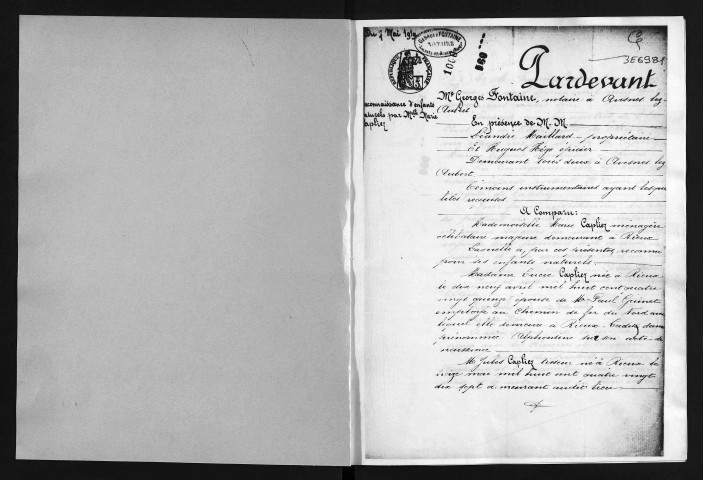 Du 7 Mai 1919
3E6981
Pardevant
Me Georges Fontaine, notaire à Avesnes lez-
Aubert
Reconnaissance d'enfants
naturels par Melle Marie
Capliez
En présence de M. M.
Léandre Maillard propriétaire
Et Hugues Régo épicier
Demeurant tous deux à Avesnes lez
Aubert
Témoins instrumentaires ayant les qua
lités requises
A Comparu:
Mademoiselle Marie Capliez ménagère
célibataire majeure demeurant à Rieux
Laquelle a, par ces présentes, reconnu
pour ses enfants naturels
Madame Lucie Capliez née à Rieux
le dix neuf avril mil huit cent quatre
vingt quinze épouse de Mr Paul
employé au Chemin de fer du Nord avec
lequel elle demeure à Rieux
prénommée Alphonsine sur son acte de
naissance
Mr Jules Capliez tisseur né à Rieux le
mai mil huit cent quatre vingt
dix sept demeurant audit lieu